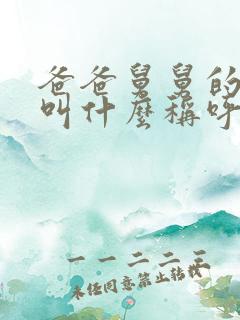 爸爸舅舅的
叫什麼稱呼
一一二二三
未经同意禁止转载